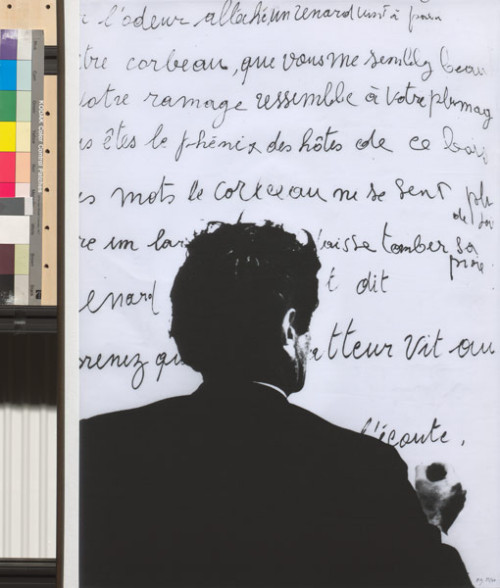 l'odeur alléché un renard vint à peu
tre corbeau, que vous me semblez beau
votre ramage ressemble à votre plumag
s êtes le phénix des hôtes de ce bois
es mots le corbeau ne se sent plu
de joi
re un lar laisse tomber sa
proie
enard t dit
prenez qu atteur vit au
l'écoute,